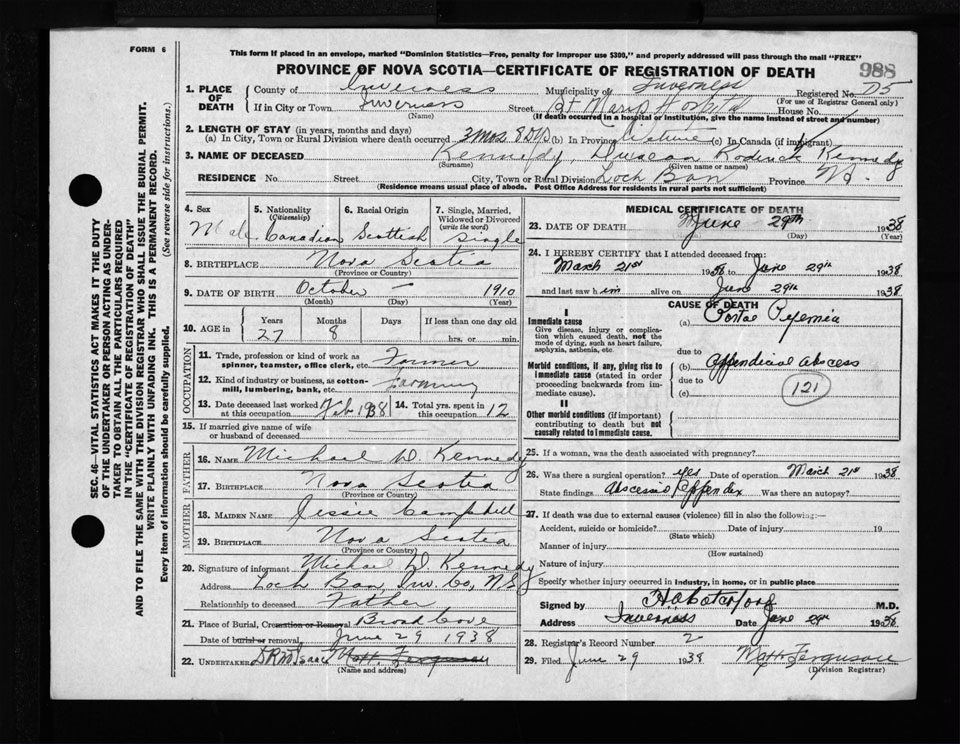 FORM 6
This form if placed in an envelope, marked "Dominion Statistics—Free, penalty for improper use $300," and properly addressed will pass through the mail "FREE"
PROVINCE OF NOVA SCOTIA—CERTIFICATE OF REGISTRATION OF DEATH
988
1. PLACE OF DEATH
County of Inverness Municipality of Inverness Registered No. 75
(For use of Registrar General only)
If in City or Town Inverness Street St Marys Hospital House No.
(Name) (If death occurred in a hospital or institution, give name instead of street and number)
2. LENGTH OF STAY (in years, months and days)
(a) In City, Town or Rural Division where death occurred 3 mos. 8 Dys (b) In Province Lifetime (c) In Canada (if immigrant)
3. NAME OF DECEASED Kennedy, Duncan Roderick Kennedy
(Surname) (Given name or names)
RESIDENCE No. Street City, Town or Rural Division Loch Ban Province NS
(Residence means usual place of abode. Post Office Address for residents in rural parts not sufficient)
SEC. 46—VITAL STATISTICS ACT MAKES IT THE DUTY
OF THE UNDERTAKER OR PERSON ACTING AS UNDER-
TAKER TO OBTAIN ALL THE PARTICULARS REQUIRED
IN THE "CERTIFICATE OF REGISTRATION OF DEATH"
AND TO FILE THE SAME WITH THE DIVISION REGISTRAR WHO SHALL ISSUE THE BURIAL PERMIT.
WRITE PLAINLY WITH UNFADING INK. THIS IS A PERMANENT RECORD.
Every item of information should be carefully supplied. (See reverse side for instructions.)
4. Sex Male
5. Nationality (Citizenship) Canadian
6. Racial Origin Scottish
7. Single, Married, Widowed or Divorced (write the word) Single
8. BIRTHPLACE Nova Scotia
(Province or Country)
9. DATE OF BIRTH October — 1910
(Month) (Day) (Year)
10. AGE in Years 27 Months 8 Days If less than one day old hrs. or min.
OCCUPATION
11. Trade, profession or kind of work as spinner, teamster, office clerk, etc. Farmer
12. Kind of industry or business, as cotton-mill, lumbering, bank, etc. Farming
13. Date deceased last worked at this occupation Feb 1938
14. Total yrs. spent in this occupation 12
15. If married give name of wife or husband of deceased
FATHER
16. NAME Michael D. Kennedy
17. BIRTHPLACE Nova Scotia
(Province or Country)
MOTHER
18. MAIDEN NAME Jessie Campbell
19. BIRTHPLACE Nova Scotia
(Province or Country)
20. Signature of informant Michael D Kennedy
Address Loch Ban, Inv. Co, N.S.
Relationship to deceased Father
21. Place of Burial, Cremation or Removal Broad Cove
Date of burial or removal June 29 1938
22. UNDERTAKER D R McIsaac Matt. Ferguson
(Name and address)
MEDICAL CERTIFICATE OF DEATH
23. DATE OF DEATH June 29th 1938
(Day) (Year)
24. I HEREBY CERTIFY that I attended deceased from:
March 21st 1938 to June 29th 1938
and last saw him alive on June 29th 1938
CAUSE OF DEATH
I
Immediate cause (a) Portal Pyemia
Give disease, injury or complication which caused death, not the mode of dying, such as heart failure, asphyxia, asthenia, etc.
due to
Morbid conditions, if any, giving rise to immediate cause (stated in order proceeding backwards from immediate cause). (b) Appendicial abscess
due to
(c) 121
II
Other morbid conditions (if important) contributing to death but not causally related to immediate cause.
25. If a woman, was the death associated with pregnancy?
26. Was there a surgical operation? yes Date of operation March 21st 1938
State findings Abscessio Appendix Was there an autopsy?
27. If death was due to external causes (violence) fill in also the following:—
Accident, suicide or homicide? Date of injury 19
(State which)
Manner of injury
(How sustained)
Nature of injury
Specify whether injury occurred in industry, in home, or in public place
Signed by M.D.
Address Inverness Date June 29th 1938
28. Registrar's Record Number 2
29. Filed June 29 1938 Matt Ferguson
(Division Registrar)